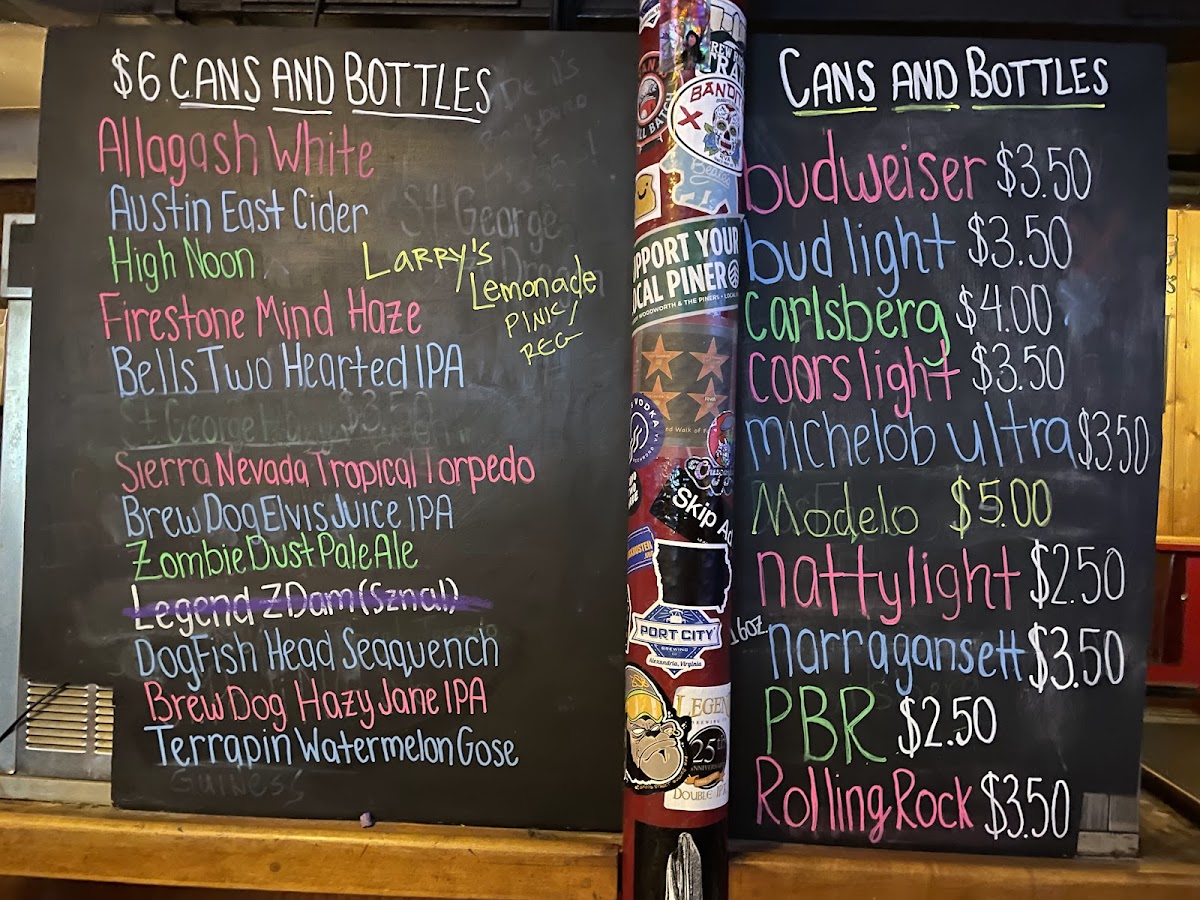 $6 CANS AND BOTTLES
Allagash White
Austin East Cider
High Noon
Larry's
Lemonade
PINK/
REG
Firestone Mind Haze
Bells Two Hearted IPA
Sierra Nevada Tropical Torpedo
Brew Dog Elvis Juice IPA
Zombie Dust Pale Ale
Legend ZDam (Sznal)
DogFish Head Seaquench
Brew Dog Hazy Jane IPA
Terrapin Watermelon Gose
Guiness
St George
BANDIT
SUPPORT YOUR
LOCAL PINER
WOODWORTH & THE PINERS
VODKA
Skip
PORT CITY
BREWING
Alexandria, Virginia
LEGEND
25th
ANNIVERSARY
DOUBLE
CANS AND BOTTLES
budweiser $3.50
bud light $3.50
carlsberg $4.00
coors light $3.50
michelob ultra $3.50
Modelo $5.00
natty light $2.50
16oz. narragansett $3.50
PBR $2.50
Rolling Rock $3.50